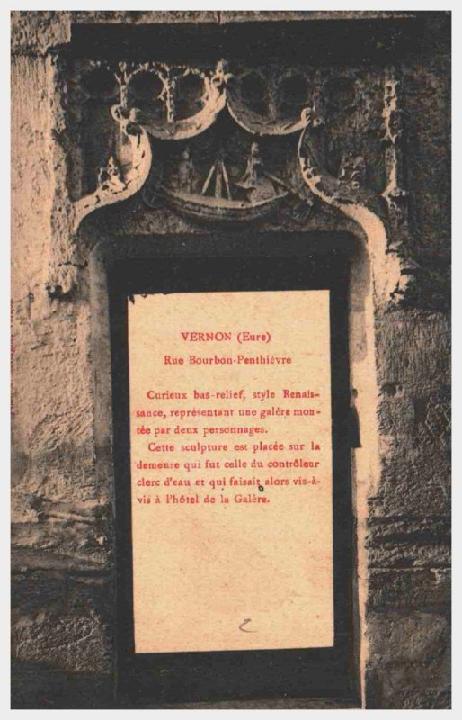 VERNON (Eure)
Rue Bourbon-Penthièvre
Curieux bas-relief, style Renais-
sance, représentant une galère mon-
tée par deux personnages.
Cette sculpture est placée sur la
demeure qui fut celle du contrôleur
clerc d'eau et qui faisait alors vis-à-
vis à l'hôtel de la Galère.